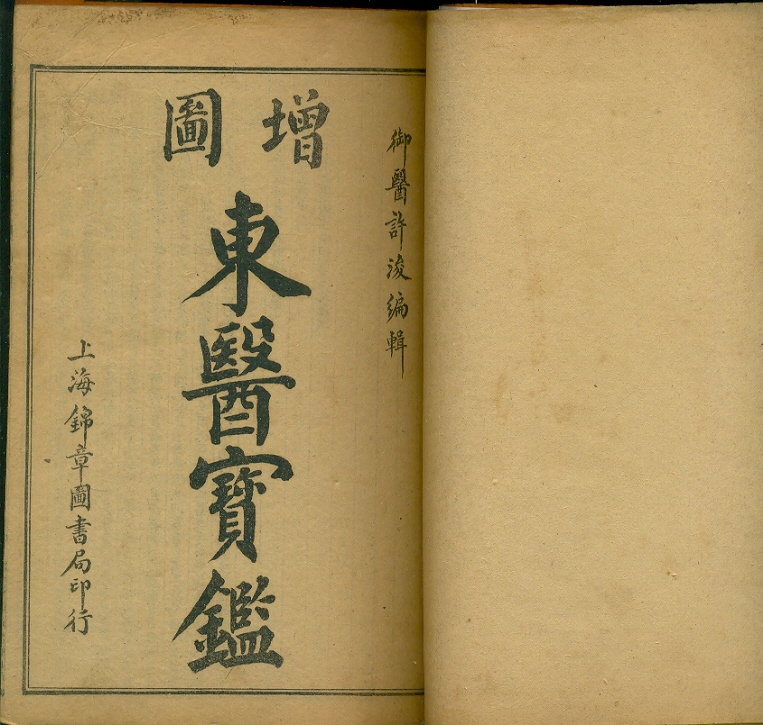 御醫許浚編輯
增圖
東醫寶鑑
上海錦章圖書局印行